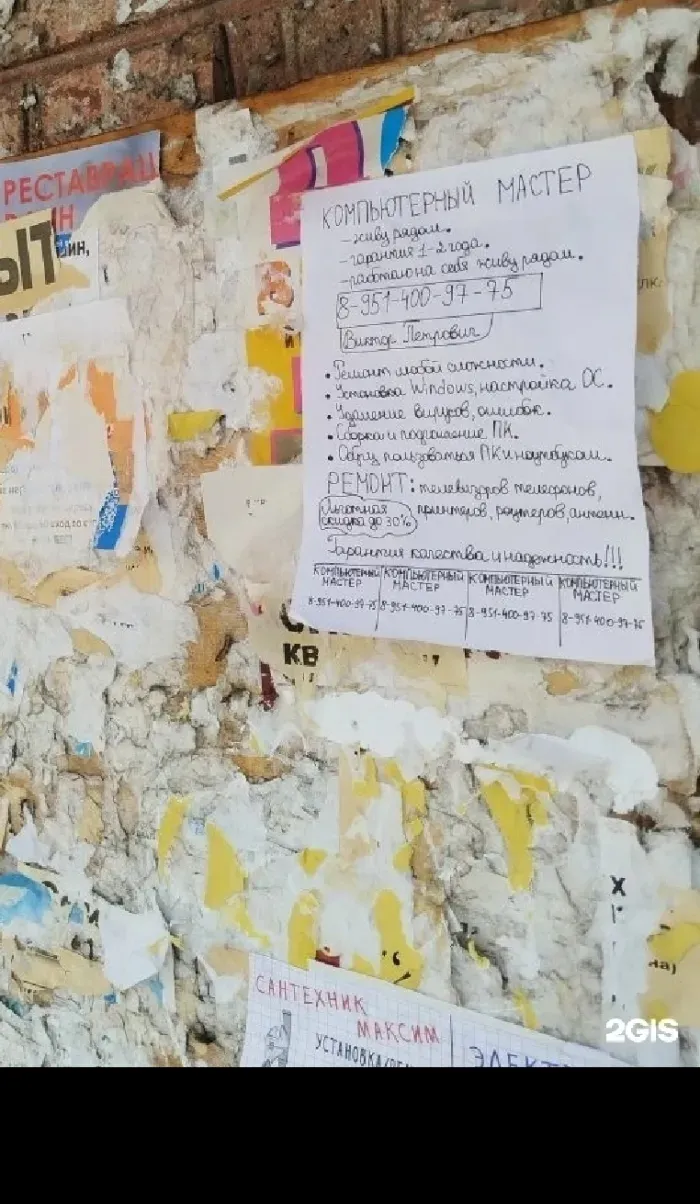 РЕСТАВРАЦ
ЫТ
ин,
КОМПЬЮТЕРНЫЙ МАСТЕР
-живу рядом.
-гарантия 1-2 года.
-работаю на себя живу рядом.
8-951-400-97-75
Виктор Петрович
• Ремонт любой сложности.
• Установка Windows, настройка ОС.
• Удаление вирусов, ошибок.
• Сборка и подключение ПК.
• Обучу пользоваться ПК и ноутбуком.
РЕМОНТ: телевизоров телефонов,
принтеров, роутеров, антенн.
Льготная
скидка до 30%
Гарантия качества и надежность!!!
КОМПЬЮТЕРНЫЙ МАСТЕР 8-951-400-97-75
КОМПЬЮТЕРНЫЙ МАСТЕР 8-951-400-97-75
КОМПЬЮТЕРНЫЙ МАСТЕР 8-951-400-97-75
КОМПЬЮТЕРНЫЙ МАСТЕР 8-951-400-97-75
КВ
на)
САНТЕХНИК
МАКСИМ
УСТАНОВКА
ЭЛЕКТ
2GIS